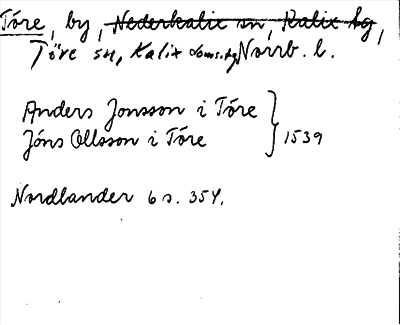 Töre, by, Nederkalix sn, Kalix hg,
Töre sn, Kalix doms.hg Norrb. l.
Anders Jonsson i Töre
Jöns Ollsson i Töre } 1539
Nordlander 6 s. 354.